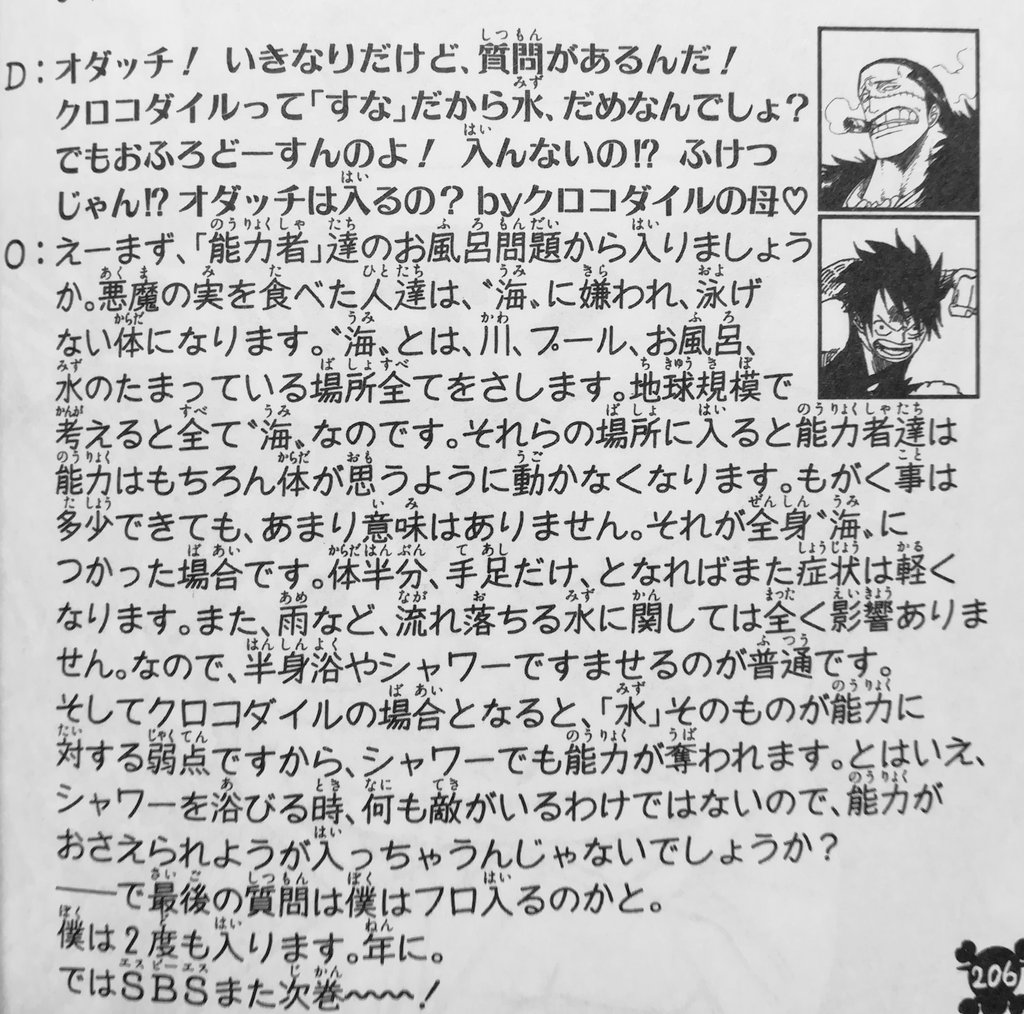 D：オダッチ！ いきなりだけど、質問があるんだ！
クロコダイルって「すな」だから水、だめなんでしょ？
でもおふろどーすんのよ！ 入んないの!? ふけつ
じゃん!? オダッチは入るの？ byクロコダイルの母♡
O：えーまず、「能力者」達のお風呂問題から入りましょう
か。悪魔の実を食べた人達は、〝海〟に嫌われ、泳げ
ない体になります。〝海〟とは、川、プール、お風呂、
水のたまっている場所全てをさします。地球規模で
考えると全て〝海〟なのです。それらの場所に入ると能力者達は
能力はもちろん体が思うように動かなくなります。もがく事は
多少できても、あまり意味はありません。それが全身〝海〟に
つかった場合です。体半分、手足だけ、となればまた症状は軽く
なります。また、雨など、流れ落ちる水に関しては全く影響ありま
せん。なので、半身浴やシャワーですませるのが普通です。
そしてクロコダイルの場合となると、「水」そのものが能力に
対する弱点ですから、シャワーでも能力が奪われます。とはいえ、
シャワーを浴びる時、何も敵がいるわけではないので、能力が
おさえられようが入っちゃうんじゃないでしょうか？
──で最後の質問は僕はフロ入るのかと。
僕は2度も入ります。年に。
ではSBSまた次巻〜〜〜！
206